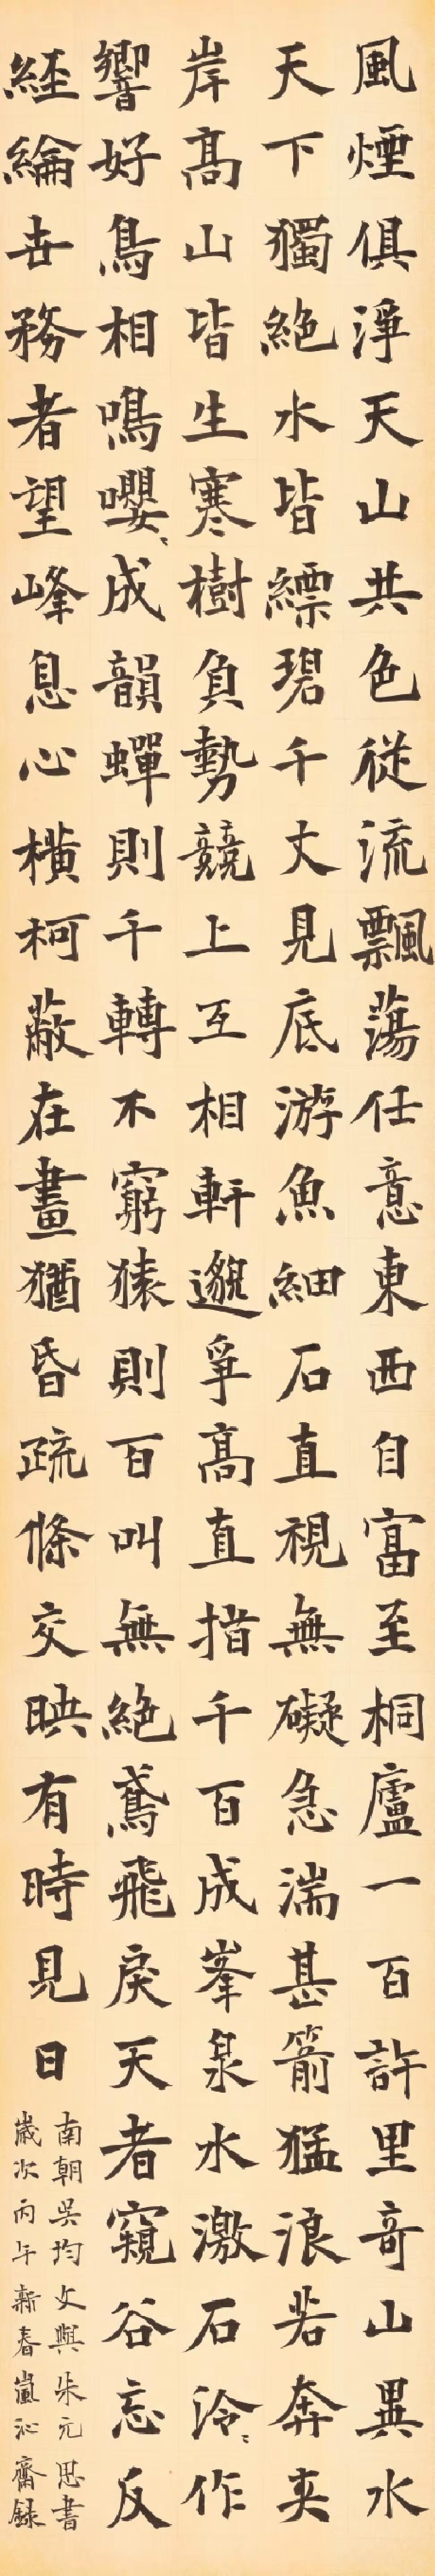 風煙俱淨天山共色從流飄蕩任意東西自富至桐廬一百許里奇山異水
天下獨絕水皆縹碧千丈見底游魚細石直視無礙急湍甚箭猛浪若奔夾
岸高山皆生寒樹負勢競上互相軒邈爭高直指千百成峯泉水激石泠〻作
響好鳥相鳴嚶〻成韻蟬則千轉不窮猿則百叫無絕鳶飛戾天者窺谷忘反
経綸世務者望峰息心橫柯蔽在晝猶昏疏條交映有時見日
南朝吳均文與朱元思書
歲次丙午新春嵐沁齋録